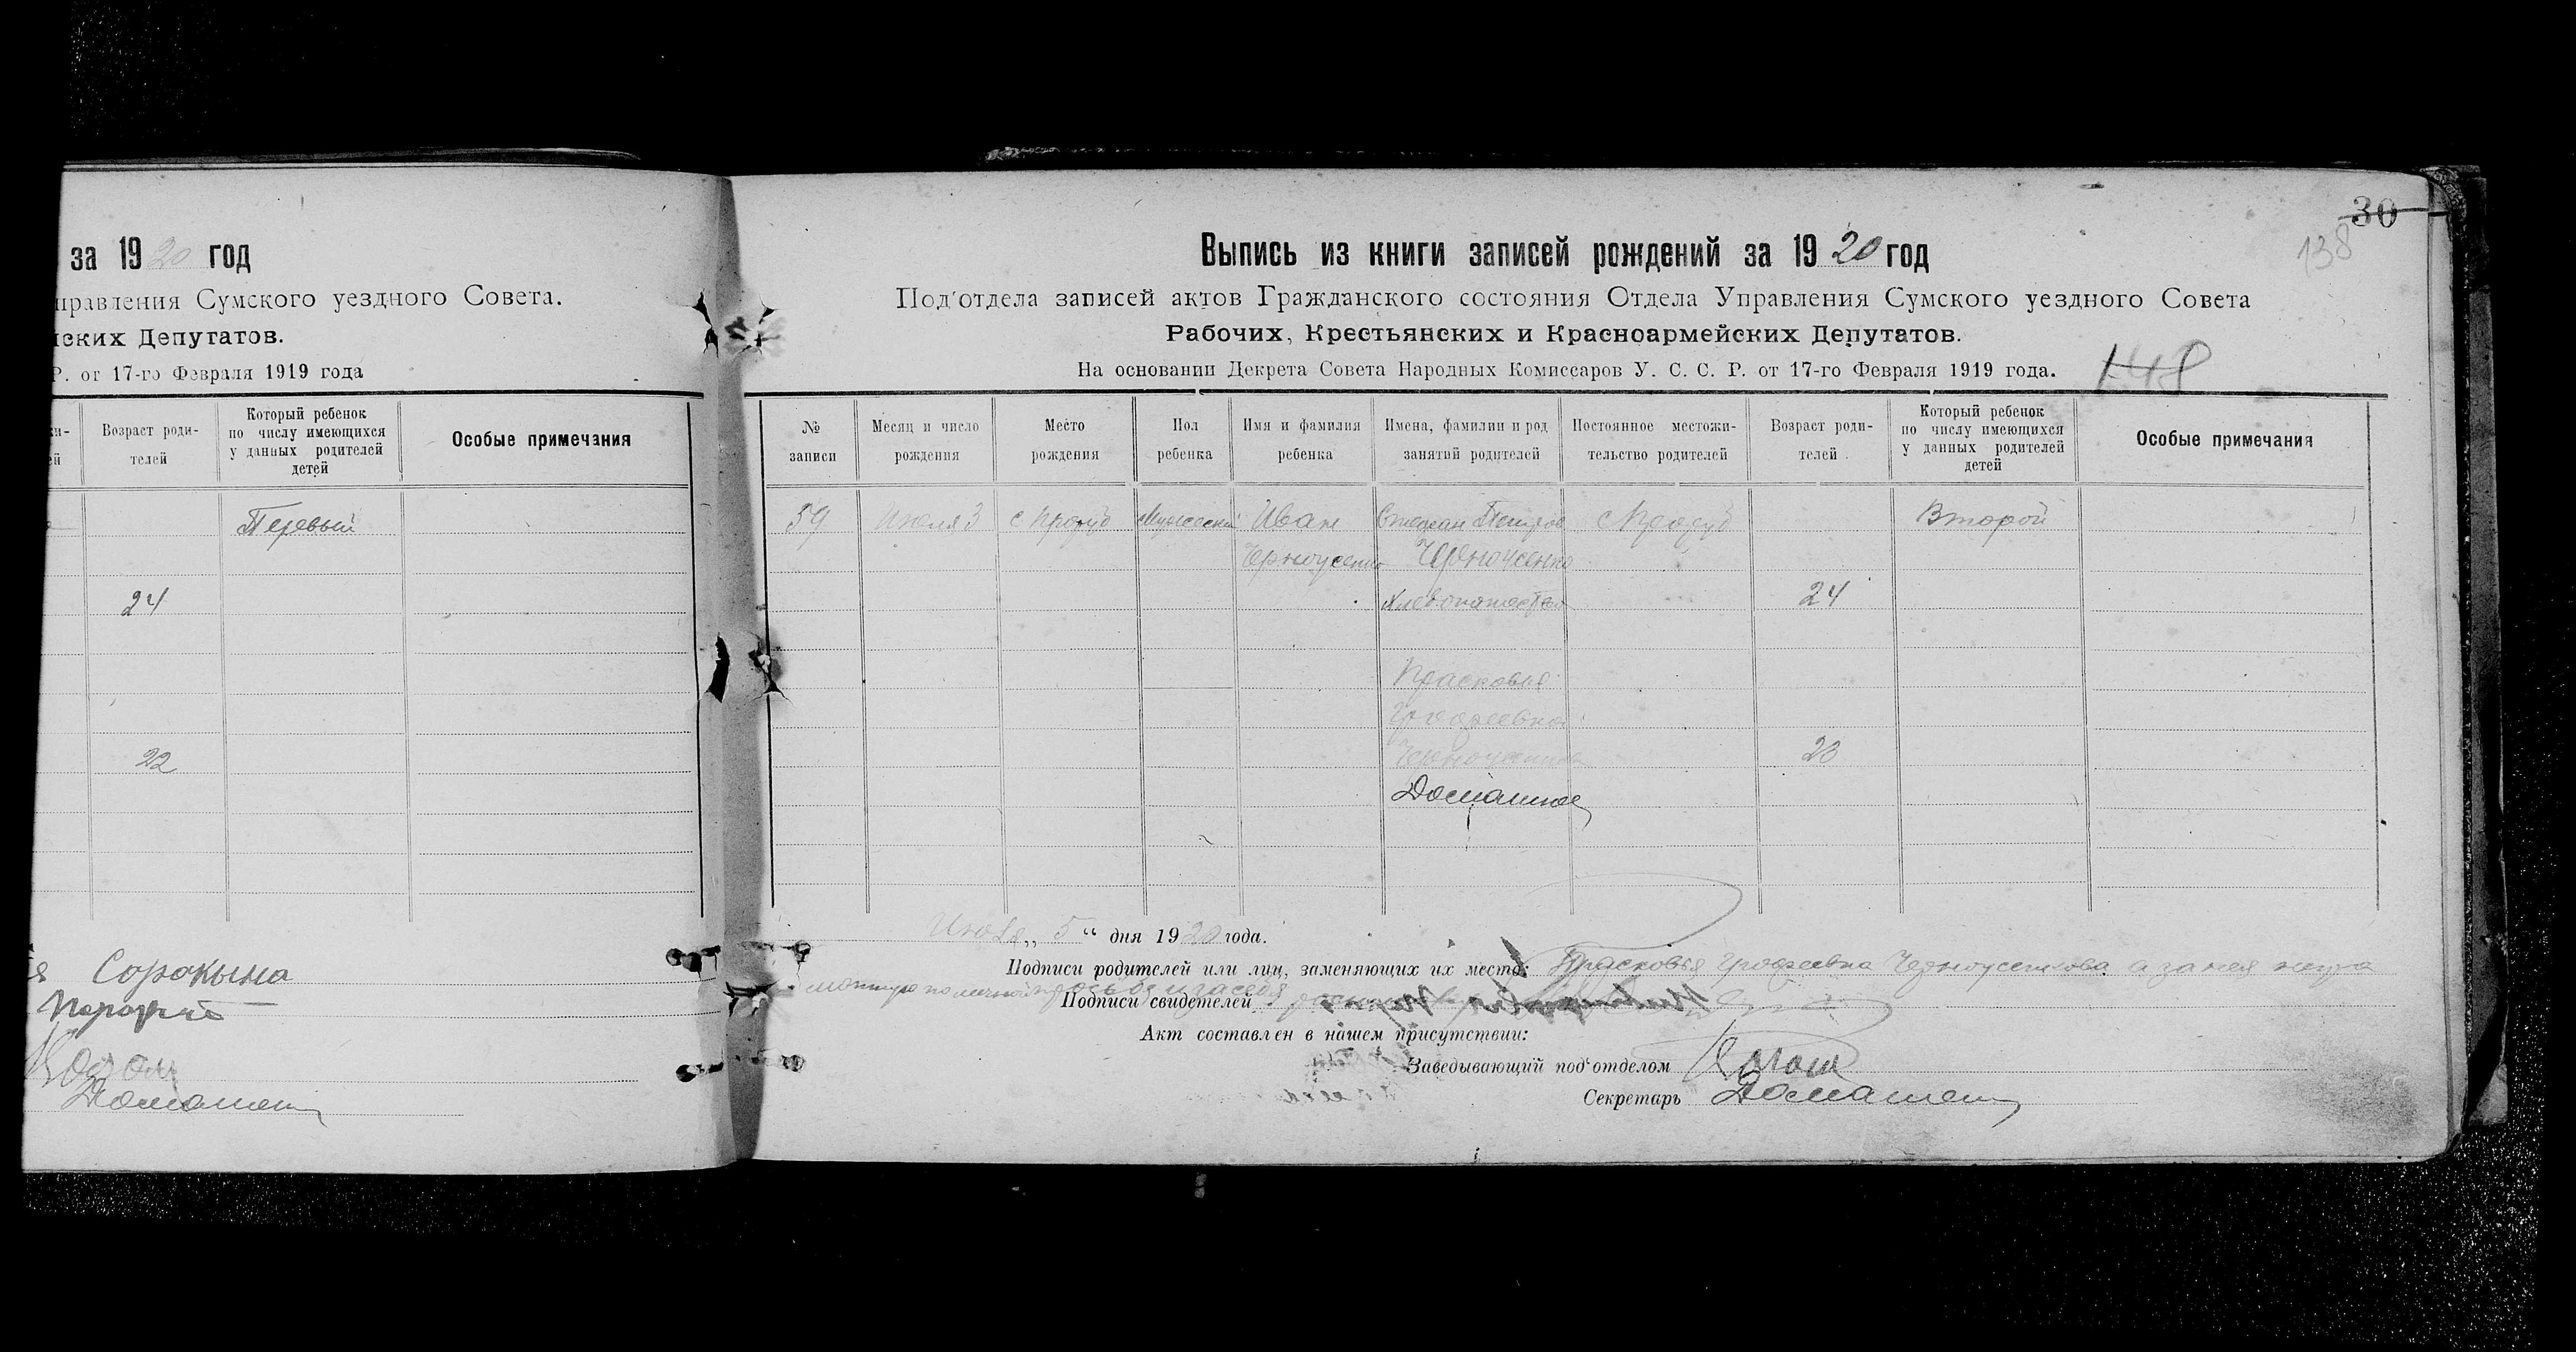 за 1920 год
правления Сумского уездного Совета.
ских Депутатов.
Р. от 17-го Февраля 1919 года
Возраст роди-
телей
Который ребенок
по числу имеющихся
у данных родителей
детей
Особые примечания
Первый
24
22
Сорокина
30
138
Выпись из книги записей рождений за 1920 год
Под'отдела записей актов Гражданского состояния Отдела Управления Сумского уездного Совета
Рабочих, Крестьянских и Красноармейских Депутатов.
На основании Декрета Совета Народных Комиссаров У. С. С. Р. от 17-го Февраля 1919 года.
148
№
записи
Месяц и число
рождения
Место
рождения
Пол
ребенка
Имя и фамилия
ребенка
Имена, фамилии и род
занятий родителей
Постоянное местожи-
тельство родителей
Возраст роди-
телей
Который ребенок
по числу имеющихся
у данных родителей
детей
Особые примечания
59 Июля 3 Мужеский Иван Степан Петров Второй
Черноусенко Черноусенко
Хлебопашество 24
Прасковья
Черноусенкова 20
Июля „ 5 " дня 1920 года.
Подписи родителей или лиц, заменяющих их место: Прасковья Черноусенкова а за нея
Подписи свидетелей
Акт составлен в нашем присутствии:
Заведывающий под'отделом
Секретарь